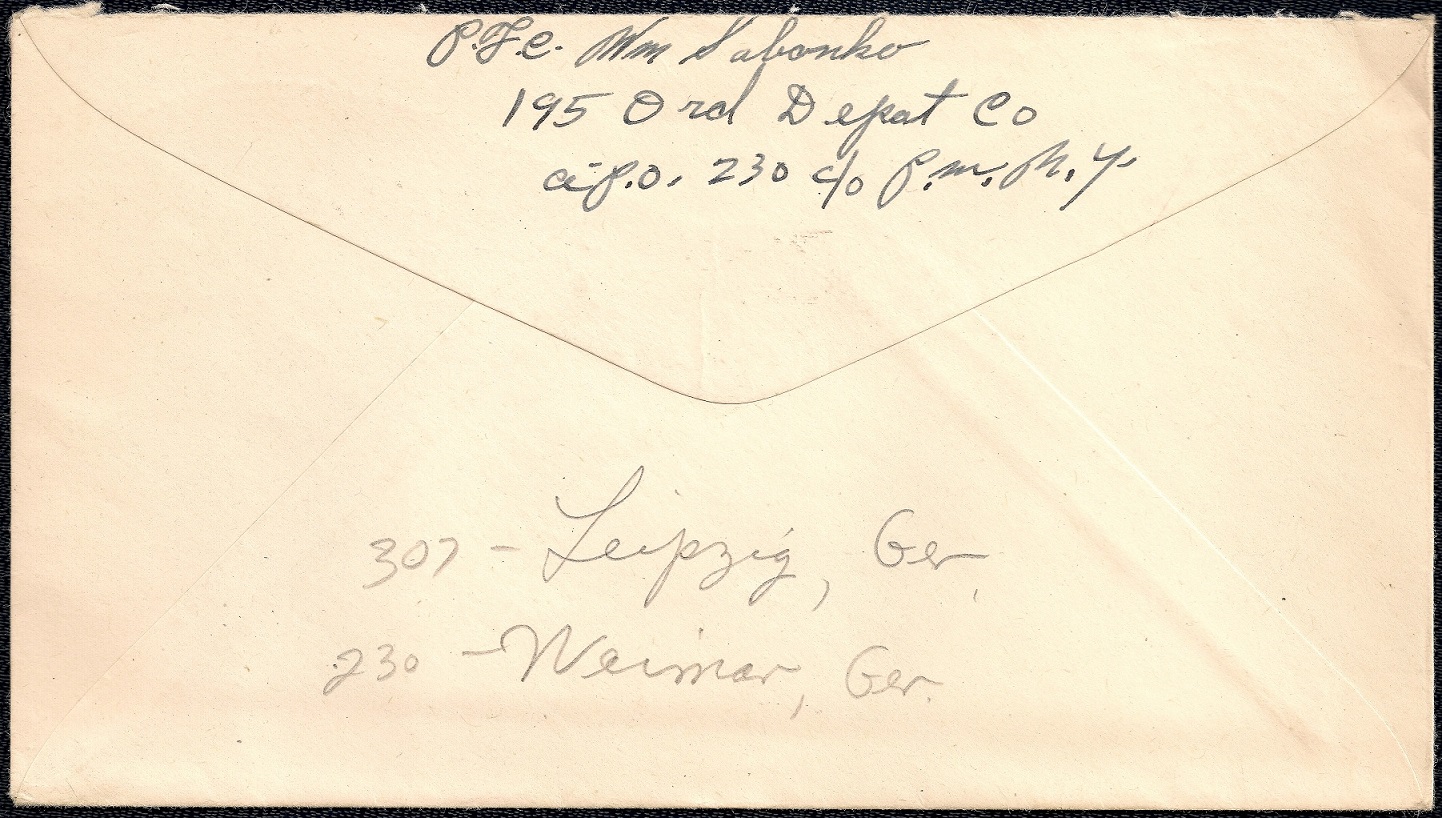 P.F.C. Wm Sabonko
195 Ord Depot Co
A.P.O. 230 c/o P.M. N.Y.
307 - Leipzig, Ger.
230 - Weimar, Ger.